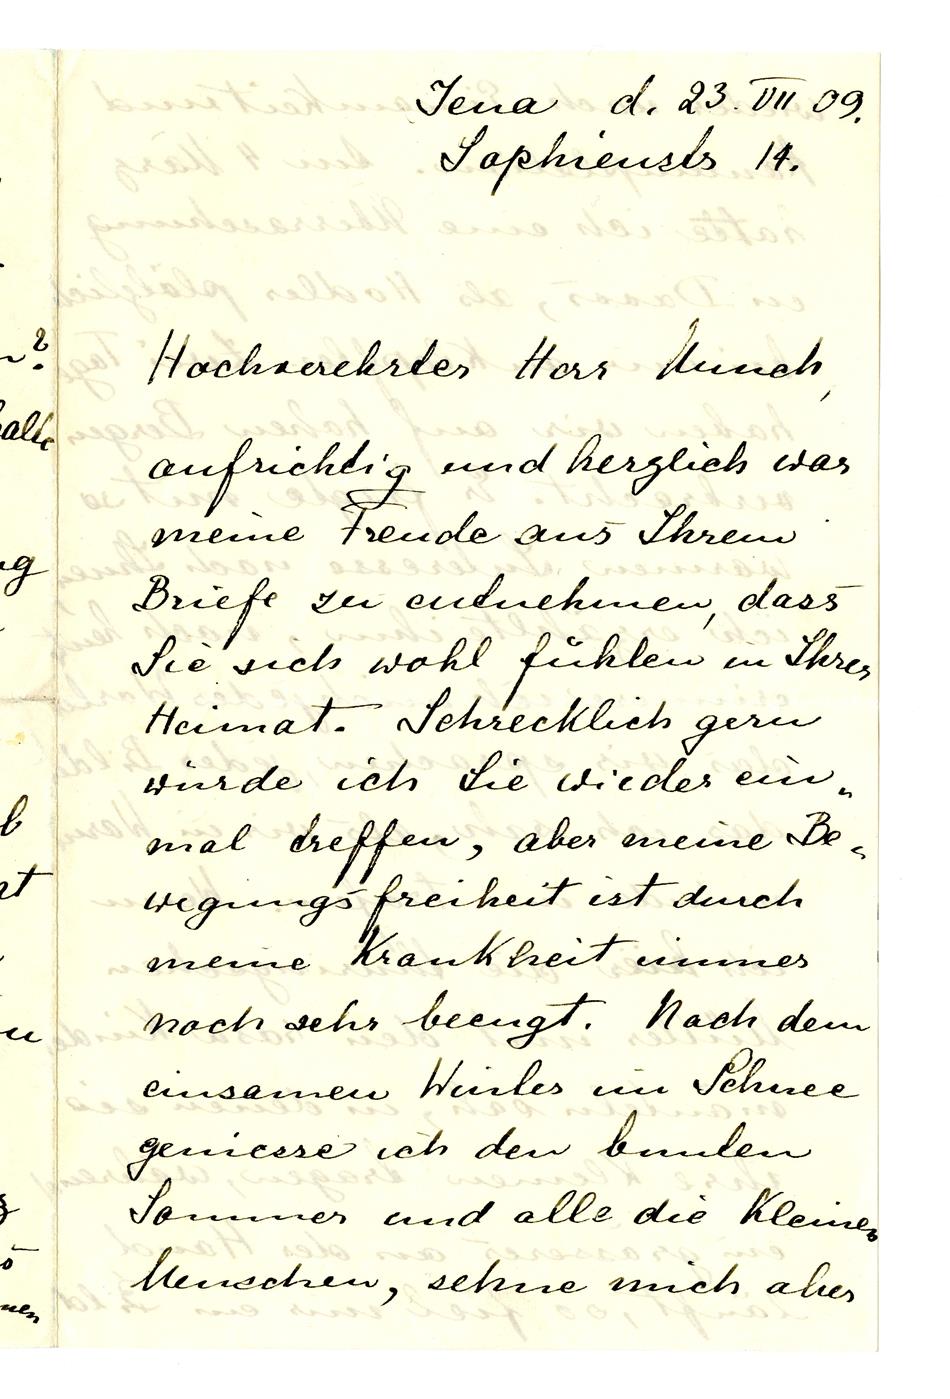 Jena d. 23. VII 09.
Sophienstr 14.
Hochverehrter Herr Munch,
aufrichtig und herzlich war
meine Freude aus Ihrem
Briefe zu entnehmen, dass
Sie sich wohl fühlen in Ihrer
Heimat. Schrecklich gern
würde ich Sie wieder ein„
mal treffen, aber meine Be„
wegungsfreiheit ist durch
meine Krankheit immer
noch sehr beengt. Nach dem
einsamen Winter im Schnee
geniesse ich den bunten
Sommer und alle die kleinen
Menschen, sehne mich aber